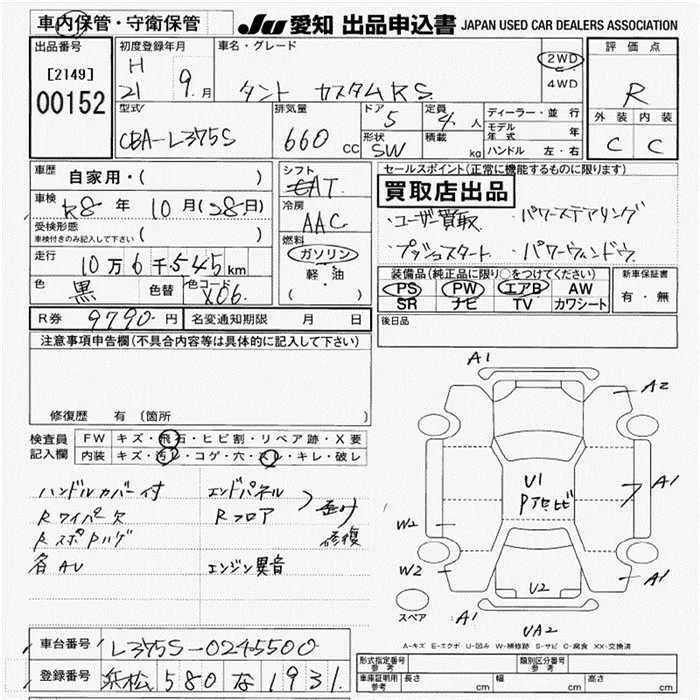 車内保管・守衛保管
JU 愛知 出品申込書 JAPAN USED CAR DEALERS ASSOCIATION
出品番号
[2149]
00152
初度登録年月
H
21 9 月
車名・グレード
タント カスタムRS
2WD
4WD
評価点
R
外装 内装
C C
型式
CBA-L375S
排気量
660 cc
ドア
5
定員
4 人
形状
SW
積載
kg
ディーラー・並行
モデル年式 年
ハンドル 左・右
車歴
自家用・( )
車検
R8 年 10 月(28日)
受検形態
車検付きのみ記入して下さい ( )
走行
10万6千545km
色
黒
色替
色コード
X06
シフト
AT
冷房
AAC
燃料
ガソリン
軽・油
( )
セールスポイント(正常に機能するものに限ります)
買取店出品
・ユーザー買取 ・パワーステアリング
・プッシュスタート ・パワーウィンドウ
装備品(純正品に限り○をつけてください)
PS PW エアB AW
SR ナビ TV カワシート
新車保証書
有・無
後日品
R券 9790-円
名変通知期限 月 日
注意事項申告欄(不具合内容等は具体的に記入して下さい)
修復歴 有 (箇所 )
検査員記入欄
FW キズ・飛石・ヒビ割・リペア跡・X要
内装 キズ・汚レ・コゲ・穴・スレ・キレ・破レ
ハンドルカバー付 エンドパネル
Rワイパー欠 Rフロア
修復
各AU エンジン異音
A1
A2
U1
A1
W2
W2
A1
U2
スペア
A1
UA2
A-キズ E-エクボ U-凹み W-補修跡 S-サビ C-腐食 XX-交換済
車台番号 L375S-0245500
登録番号 浜松 580 な 1931
形式指定番号
参考
類別区分番号
参考
車庫証明用
参考
長さ cm 幅 cm 高さ cm